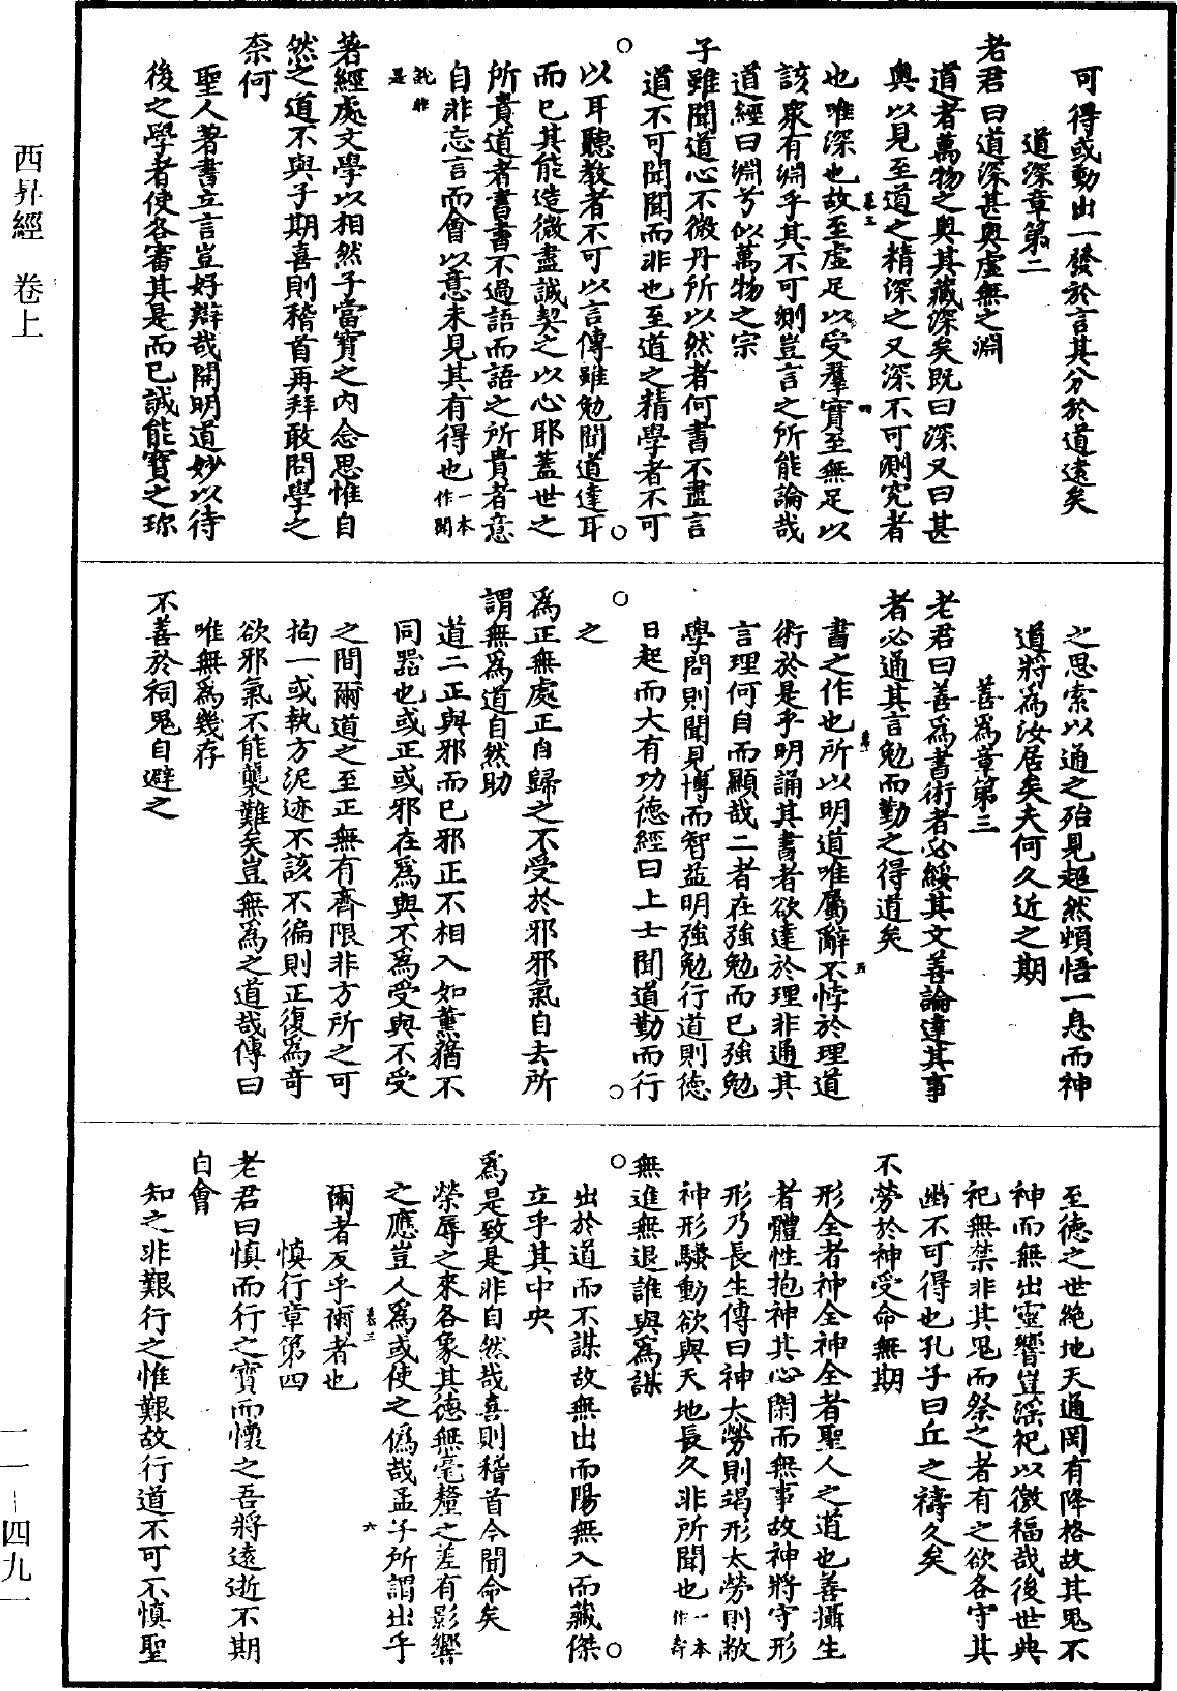 西昇經　卷上
可得或動出一發於言其分於道遠矣
道深章第二
老君曰道深甚奧虛無之淵
道者萬物之奧其藏深矣既曰深又曰甚
奧以見至道之精深之又深不可測究者
也唯深也故至虛足以受羣實至無足以
該衆有淵乎其不可測豈言之所能論哉
道經曰淵兮似萬物之宗
子雖聞道心不微丹所以然者何書不盡言
道不可聞聞而非也至道之精學者不可
以耳聽教者不可以言傳雖勉聞道達耳
而已其能造微盡誠契之以心耶蓋世之
所貴道者書書不過語而語之所貴者意
自非忘言而會以意未見其有得也一本作聞
訛非是
著經處文學以相然子當寶之內念思惟自
然之道不與子期喜則稽首再拜敢問學之
柰何
聖人著書立言豈好辯哉開明道妙以待
後之學者使各審其是而已誠能寶之珎
之思索以通之殆見超然頓悟一息而神
道將為汝居矣夫何久近之期
善為章第三
老君曰善為書術者必綏其文善論達其事
者必通其言勉而勤之得道矣
書之作也所以明道唯屬辭不悖於理道
術於是乎明誦其書者欲達於理非通其
言理何自而顯哉二者在強勉而已強勉
學問則聞見博而智益明強勉行道則德
日起而大有功德經曰上士聞道勤而行
之
為正無處正自歸之不受於邪邪氣自去所
謂無為道自然助
道二正與邪而已邪正不相入如薰蕕不
同器也或正或邪在為與不為受與不受
之間爾道之至正無有齊限非方所之可
拘一或執方泥迹不該不徧則正復為奇
欲邪氣不能襲難矣豈無為之道哉傳曰
唯無為幾存
不善於祠鬼自避之
至德之世絕地天通罔有降格故其鬼不
神而無出靈響豈淫祀以徼福哉後世典
祀無禁非其鬼而祭之者有之欲各守其
幽不可得也孔子曰丘之禱久矣
不勞於神受命無期
形全者神全神全者聖人之道也善攝生
者體性抱神其心閑而無事故神將守形
形乃長生傳曰神太勞則竭形太勞則敝
神形騷動欲與天地長久非所聞也一本作壽
無進無退誰與為謀
出於道而不謀故無出而陽無入而藏傑
立乎其中央
為是致是非自然哉喜則稽首今聞命矣
榮辱之來各象其德無毫釐之差有影響
之應豈人為或使之偽哉孟子所謂出乎
爾者反乎爾者也
慎行章第四
老君曰慎而行之寶而懷之吾將遠逝不期
自會
知之非艱行之惟艱故行道不可不慎聖
一一－四九一